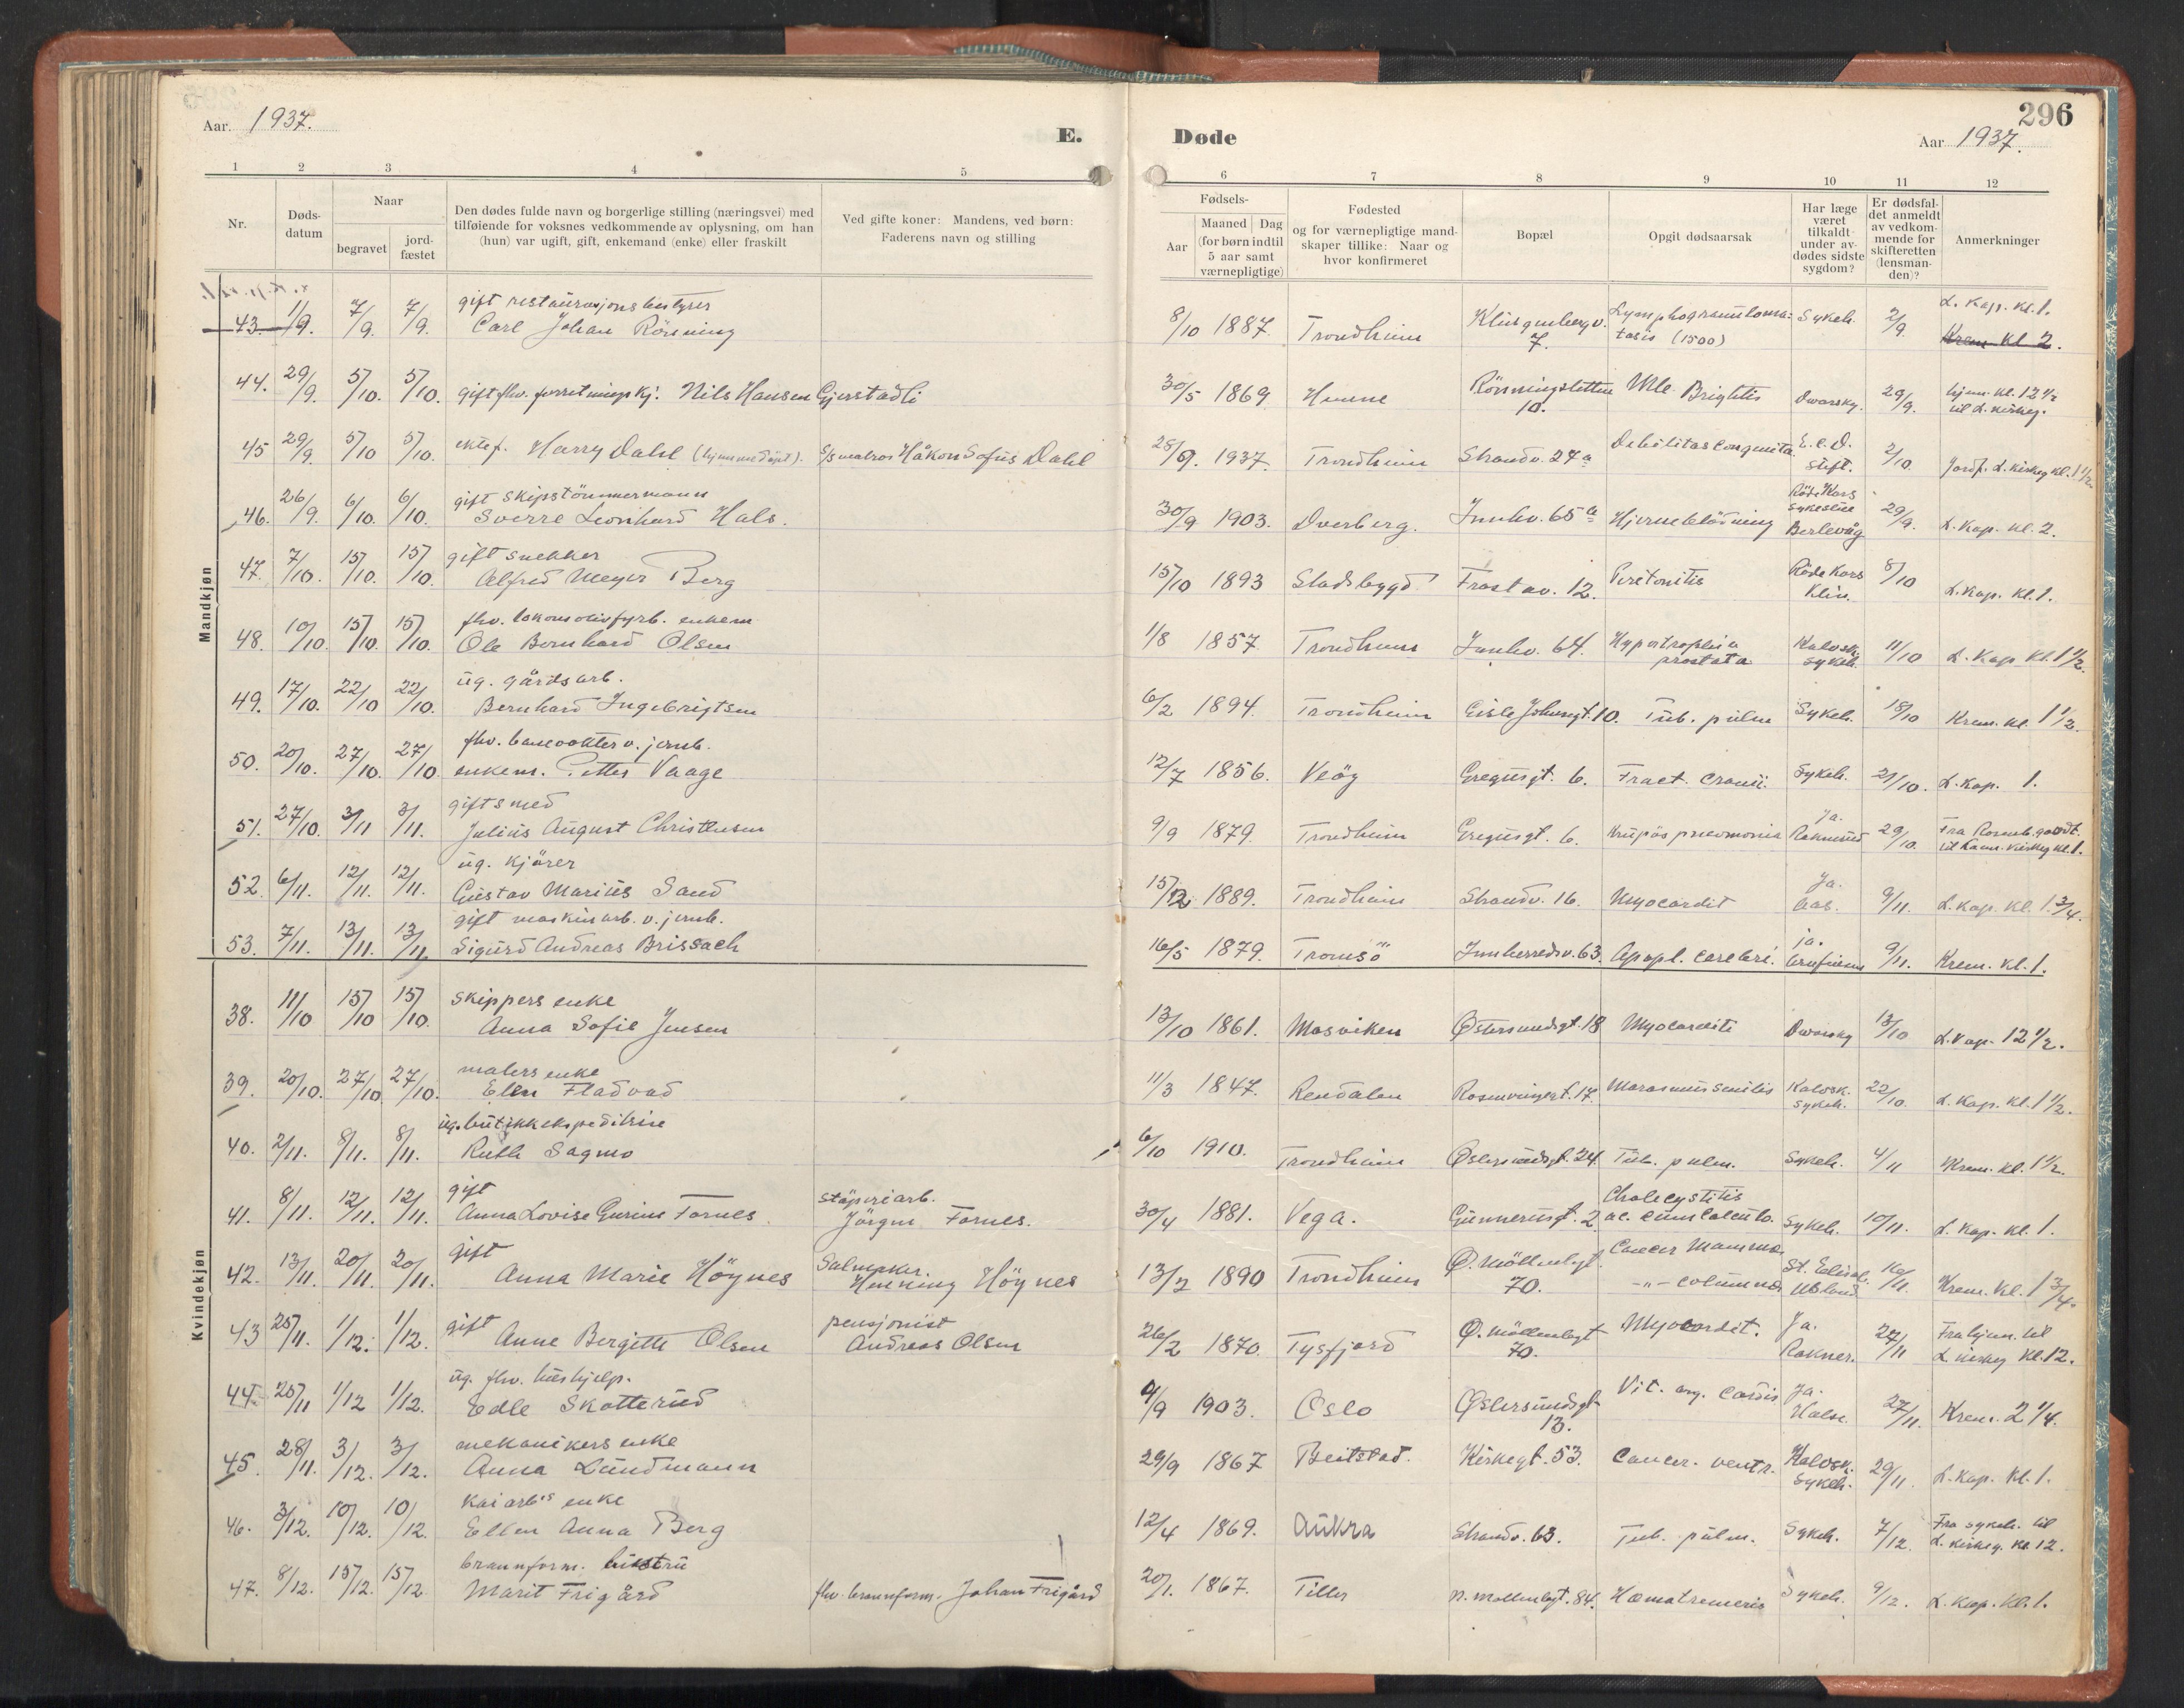 296
Aar. 1937.
E.
Døde
Aar 1937.
1 2 3 4 5 6 7 8 9 10 11 12
Nr.
Døds-
datum
Naar
begravet
jord-
fæstet
Den dødes fulde navn og borgerlige stilling (næringsvei) med
tilføiende for voksnes vedkommende av oplysning, om han
(hun) var ugift, gift, enkemand (enke) eller fraskilt
Ved gifte koner: Mandens, ved børn:
Faderens navn og stilling
Fødsels-
Aar
Maaned Dag
(for børn indtil
5 aar samt
værnepligtige)
Fødested
og for værnepligtige mand-
skaper tillike: Naar og
hvor konfirmeret
Bopæl
Opgit dødsaarsak
Har læge
været
tilkaldt
under av-
dødes sidste
sygdom?
Er dødsfal-
det anmeldt
av vedkom-
mende for
skifteretten
(lensman-
den)?
Anmerkninger
Mandkjøn
gift restaurasjonsbestyrer L. Kap. kl. 1.
43. 1/9. 7/9. 7/9. Carl Johan Rönning 8/10 1887. Trondheim Klingenbergv. 7. Lymphogranuloma-tosis (1500) Sykeh. 2/9. Krem kl 2.
44. 29/9. 5/10. 5/10. gift fhv. forretningskj. Nils Hansen Gjerstadli 30/5 1869 Hemne Rönningsletten 10. Brightii Dvorsky. 29/9. hjem. kl. 12 1/2
til L. kirkeg.
45 29/9. 5/10 5/10. ektef. Harry Dahl (hjemmedöpt). S/S matros Håkon Sofus Dahl 28/9. 1937. Trondheim Strandv. 27a Debilitas congenita E. C. D. stift. 2/10. Jordf. L. kirkeg kl. 1 1/2
gift skipstömmermann Röde Kors
46. 26/9. 6/10. 6/10. Sverre Leonhard Hals. 30/9 1903. Dverberg. Innhv. 65a Hjerneblödning sykestue Berlevåg 29/9. L. Kap. kl. 2.
gift snekker
47. 7/10. 15/10. 15/10. Alfred Meyer Berg 15/10 1893 Stadsbygd Frostav. 12. Peritonitis Röde Kors Klin. 8/10 L. Kap. kl. 1.
fhv. lokomotivfyrb. enkem
48. 10/10. 15/10. 15/10. Ole Bernhard Olsen 1/8 1857. Trondheim Innhv. 64. Hypertrophia prostata Kalvsk. sykeh. 11/10 L. Kap kl. 1 1/2.
ug. gårdsarb.
49. 17/10. 22/10 22/10. Bernhard Ingebrigtsen 6/2 1894. Trondheim Eirik Jarlsgt. 10. Tub. pulm Sykeh. 18/10 Krem. kl. 1 1/2.
fhv. banevokter v. jernb.
50. 20/10. 27/10. 27/10 enkem. Petter Vaage 12/7 1856. Veöy Gregusgt. 6. Fract. cranii. Sykeh. 21/10. L. Kap. 1.
gift smed Ja.
51. 27/10. 3/11 3/11. Julius August Christensen 9/9 1879. Trondheim Gregusgt. 6. Krupös pneumonia Raknerud 29/10. Fra Rosenb. gaardt.
til Lam. kirkeg kl. 1.
ug. kjörer Ja.
52. 6/11. 12/11. 12/11. Gustav Marius Sand 15/12 1889. Trondheim Strandv. 16. Myocardit Aas. 9/11. L. Kap. kl. 1 3/4.
gift maskinarb. v. jernb. ja.
53. 7/11. 13/11. 13/11. Sigurd Andreas Brissach 16/5 1879. Tromsö Innherredsv. 63. Apopl. cerebri. 9/11. Krem. kl. 1.
Kvindekjøn
skippers enke
38. 11/10 15/10 15/10. Anna Sofie Jensen 13/10 1861. Mosviken Østersundsgt. 18 Myocardit Dvorsky 13/10 L. Kap. 12 1/2.
malers enke
39. 20/10. 27/10 27/10. Ellen Fladvad 11/3 1847. Rendalen Rosenvingesgt. 17. Marasmus senilis Kalvsk. sykeh. 22/10. L. Kap. kl. 1 1/2.
ug. butikkekspeditrise
40. 2/11. 8/11. 8/11. Ruth Sagmo 6/10 1910. Trondheim Østersundsgt. 24. Tub. pulm. Sykeh. 4/11 Krem. kl. 1 1/2.
gift støperiarb. Cholecystitis
41. 8/11. 12/11. 12/11. Anna Lovise Gurine Fornes Jörgen Fornes. 30/4 1881. Vega. Gunnerusgt. 2 ac. cum calculo. Sykeh. 10/11. L. Kap. kl. 1.
gift Salmaker. Cancer Mamma
42. 13/11. 20/11. 20/11. Anna Marie Höynes Henning Höynes 13/2 1890 Trondheim Ø. Möllenbgt. 70. -"- columna St. Elisab. Ubland 16/11. Krem. kl. 1 3/4.
gift pensjonist
43 25/11. 1/12. 1/12. Anne Bergitte Olsen Andreas Olsen 26/2 1870. Tysfjord Ø. Möllenbgt 70. Myocardit. Ja. Rakner. 27/11 Fra hjem. til
L. kirkeg kl. 12.
ug. fhv. hushjelp.
44. 25/11 1/12 1/12. Edle Skotterud 4/9 1903. Oslo Østersundsgt 13. Vit. org. cordis Ja. Halse. 27/11. Krem. 2 1/4.
mekanikers enke
45. 28/11. 3/12. 3/12. Anna Lundmann 29/9 1867 Beitstad. Kirkegt. 53. Cancer. ventr. Kalvsk. sykeh. 29/11. L. Kap. kl. 1.
kaiarb's enke
46. 3/12. 10/12. 10/12. Ellen Anna Berg 12/4 1869. Aukra Strandv. 63. Tub. pulm. Sykeh. 7/12. Fra sykeh. til
L. kirkeg. kl 12.
brannform. hustru
47. 8/12. 15/12. 15/12 Marit Frigård fhv. brannform. Johan Frigård 20/1. 1867. Tiller N. Möllenbgt. 84. Hæmatemesis Sykeh. 9/12. L. Kap. kl. 1.